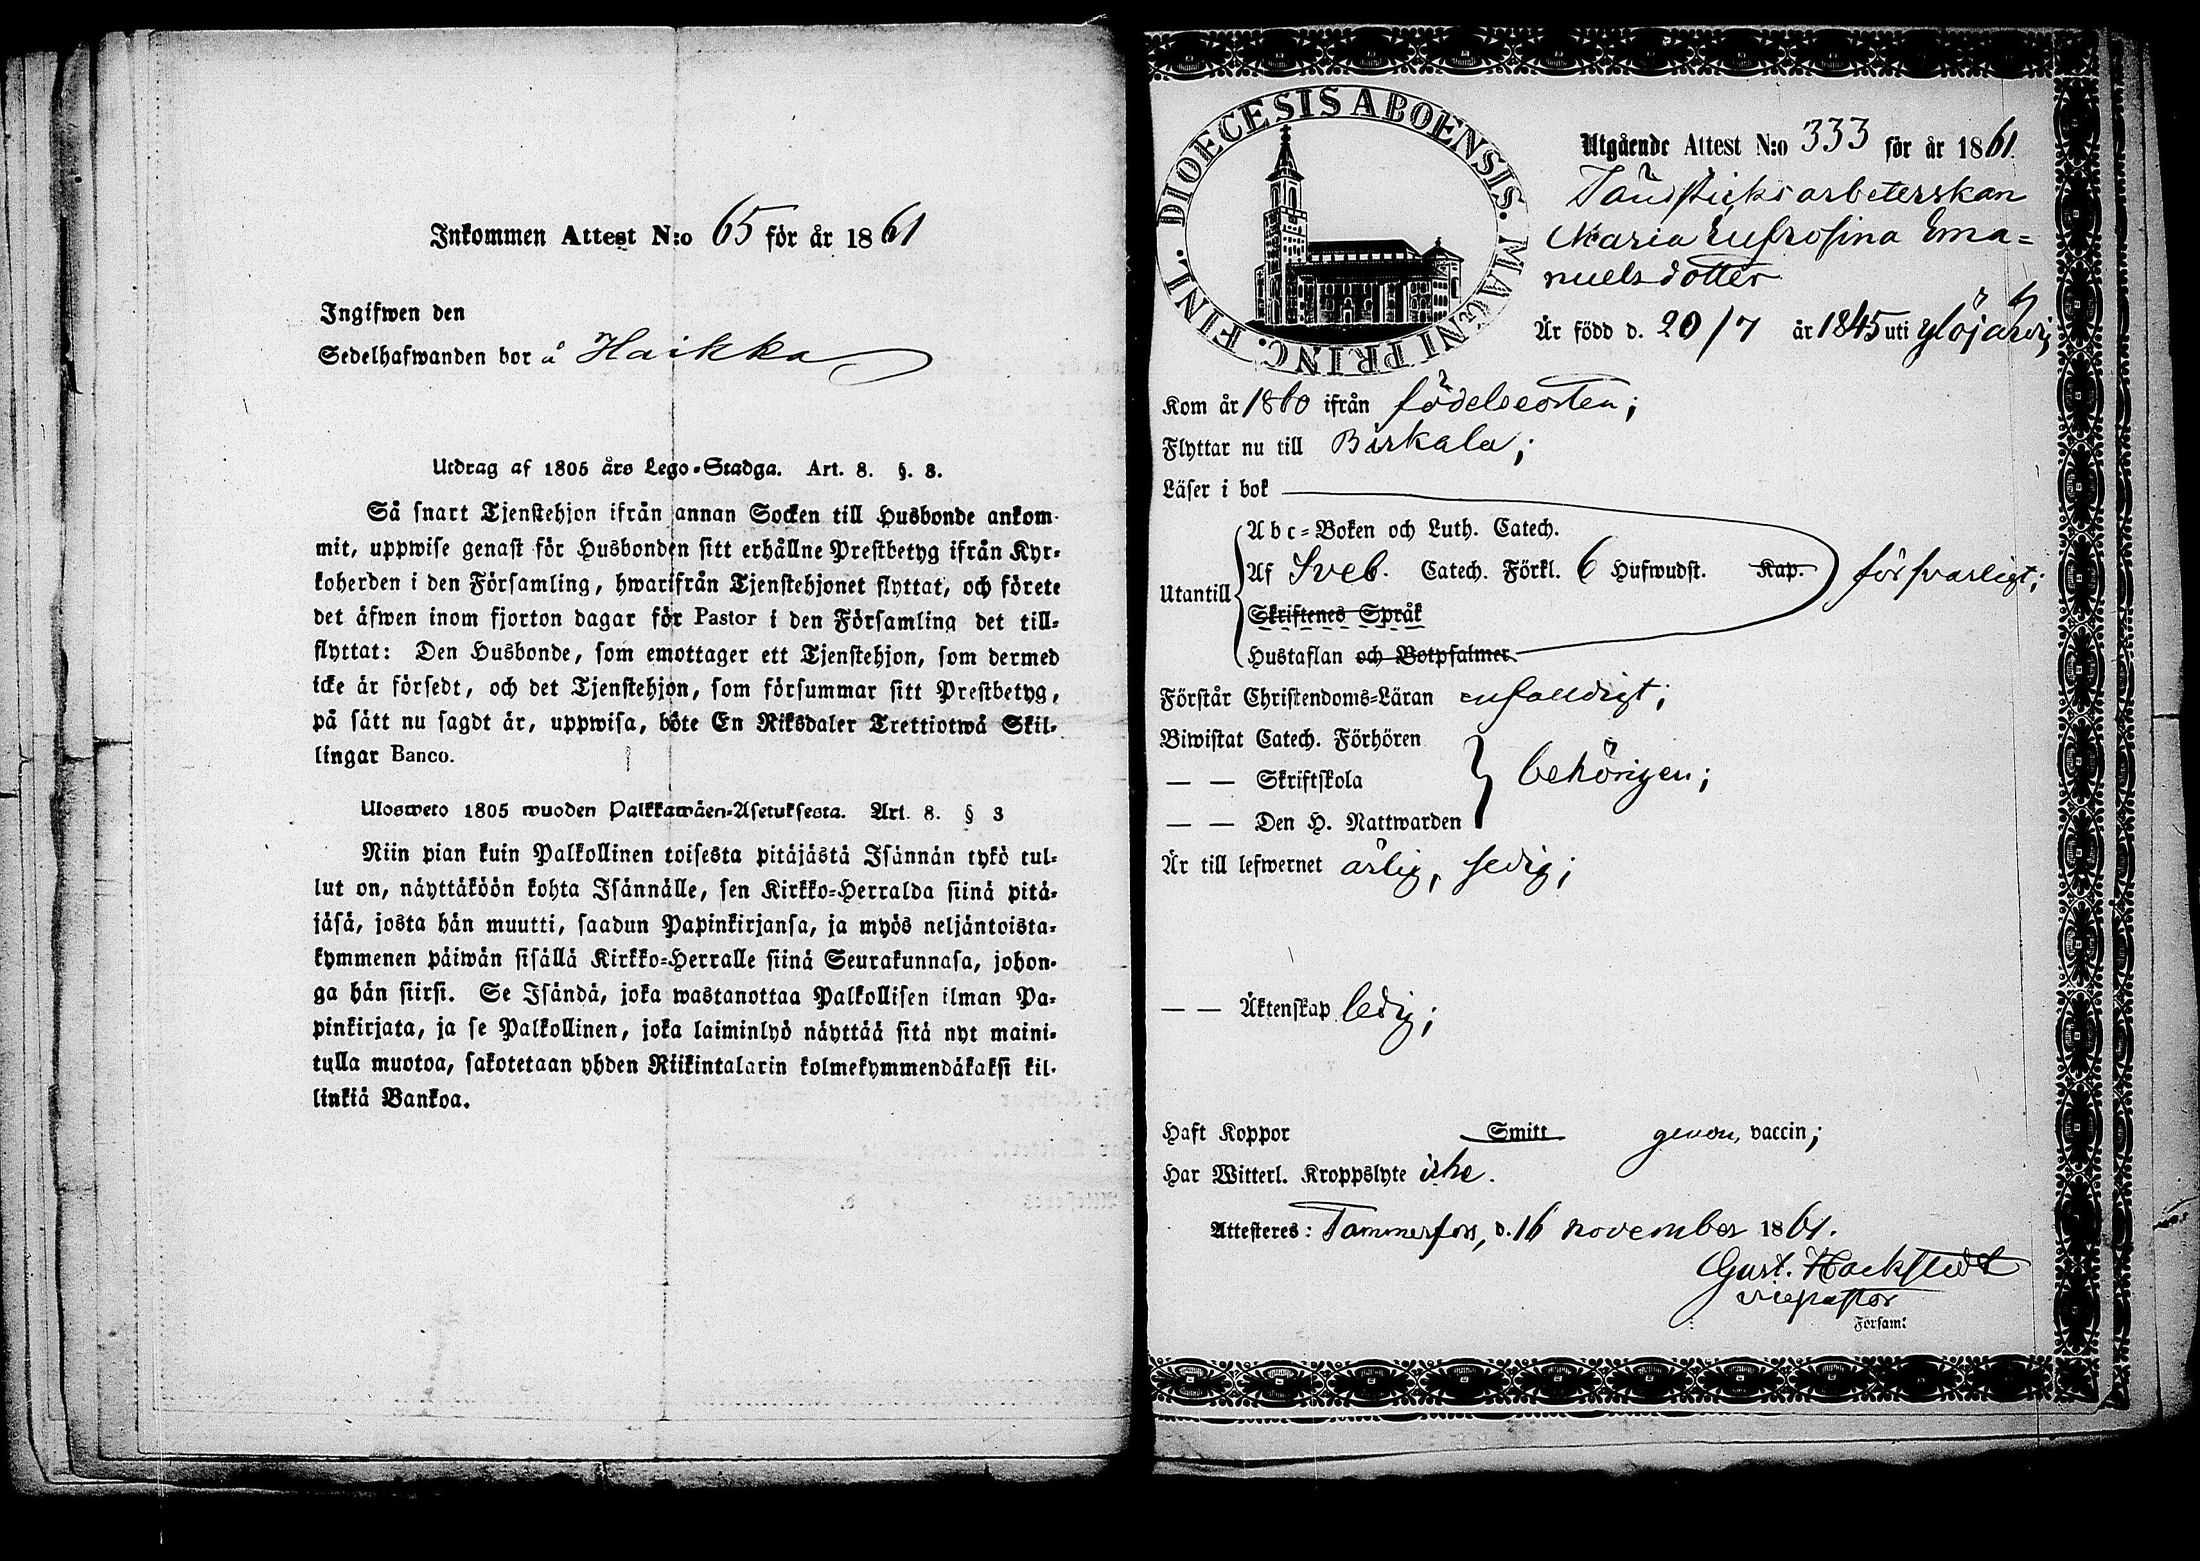 Inkommen Attest N:o 65 för år 1861
Ingifwen den
Sedelhafwanden bor å Haikka
Utdrag af 1805 års Lego-Stadga. Art. 8. §. 3.
Så snart Tjenstehjon ifrån annan Socken till Husbonde ankom-
mit, uppwise genast för Husbonden sitt erhållne Prestbetyg ifrån Kyr-
koherden i den Församling, hwarifrån Tjenstehjonet flyttat, och förete
det äfwen inom fjorton dagar för Pastor i den Församling det till-
flyttat: Den Husbonde, som emottager ett Tjenstehjon, som dermed
icke är försedt, och det Tjenstehjon, som försummar sitt Prestbetyg,
på sätt nu sagdt är, uppwisa, böte En Riksdaler Trettiotwå Skil-
lingar Banco.
Ulosweto 1805 wuoden Palkkawäen-Asetuksesta. Art. 8. § 3
Niin pian kuin Palkollinen toisesta pitäjästä Isännän tykö tul-
lut on, näyttäköön kohta Isännälle, sen Kirkko-Herralda siinä pitä-
jäsä, josta hän muutti, saadun Papinkirjansa, ja myös neljäntoista-
kymmenen päiwän sisällä Kirkko-Herralle siinä Seurakunnasa, johon-
ga hän siirsi. Se Isändä, joka wastanottaa Palkollisen ilman Pa-
pinkirjata, ja se Palkollinen, joka laiminlyö näyttää sitä nyt maini-
tulla muotoa, sakotetaan yhden Riikintalarin kolmekymmendäkaksi kil-
linkiä Bankoa.
DIOECESIS ABOENSIS. MAGNI PRINC. FINL.
Utgående Attest N:o 333 för år 1861.
Tändsticksarbeterskan
Maria Eufrosina Ema=
nuelsdotter
Är född d. 20/7 år 1845 uti Ylöjärvi
Kom år 1860 ifrån födelseorten;
Flyttar nu till Birkala;
Läser i bok
Utantill
Abc=Boken och Luth. Catech.
Af Sveb. Catech. Förkl. 6 Hufwudst. Kap. försvarligt;
Skriftenes Språk
Hustaflan och Botpsalmer.
Förstår Christendoms-Läran enfaldigt;
Biwistat Catech. Förhören
— — Skriftskola behörigen;
— — Den H. Nattwarden
Är till lefwernet ärlig, sedig;
— — Äktenskap ledig;
Haft Koppor Smitt genom, vaccin;
Har Witterl. Kroppslyte icke.
Attesteres: Tammerfors, d. 16 november 1861.
Gust. Hackstedt
vicepastor
Försam: